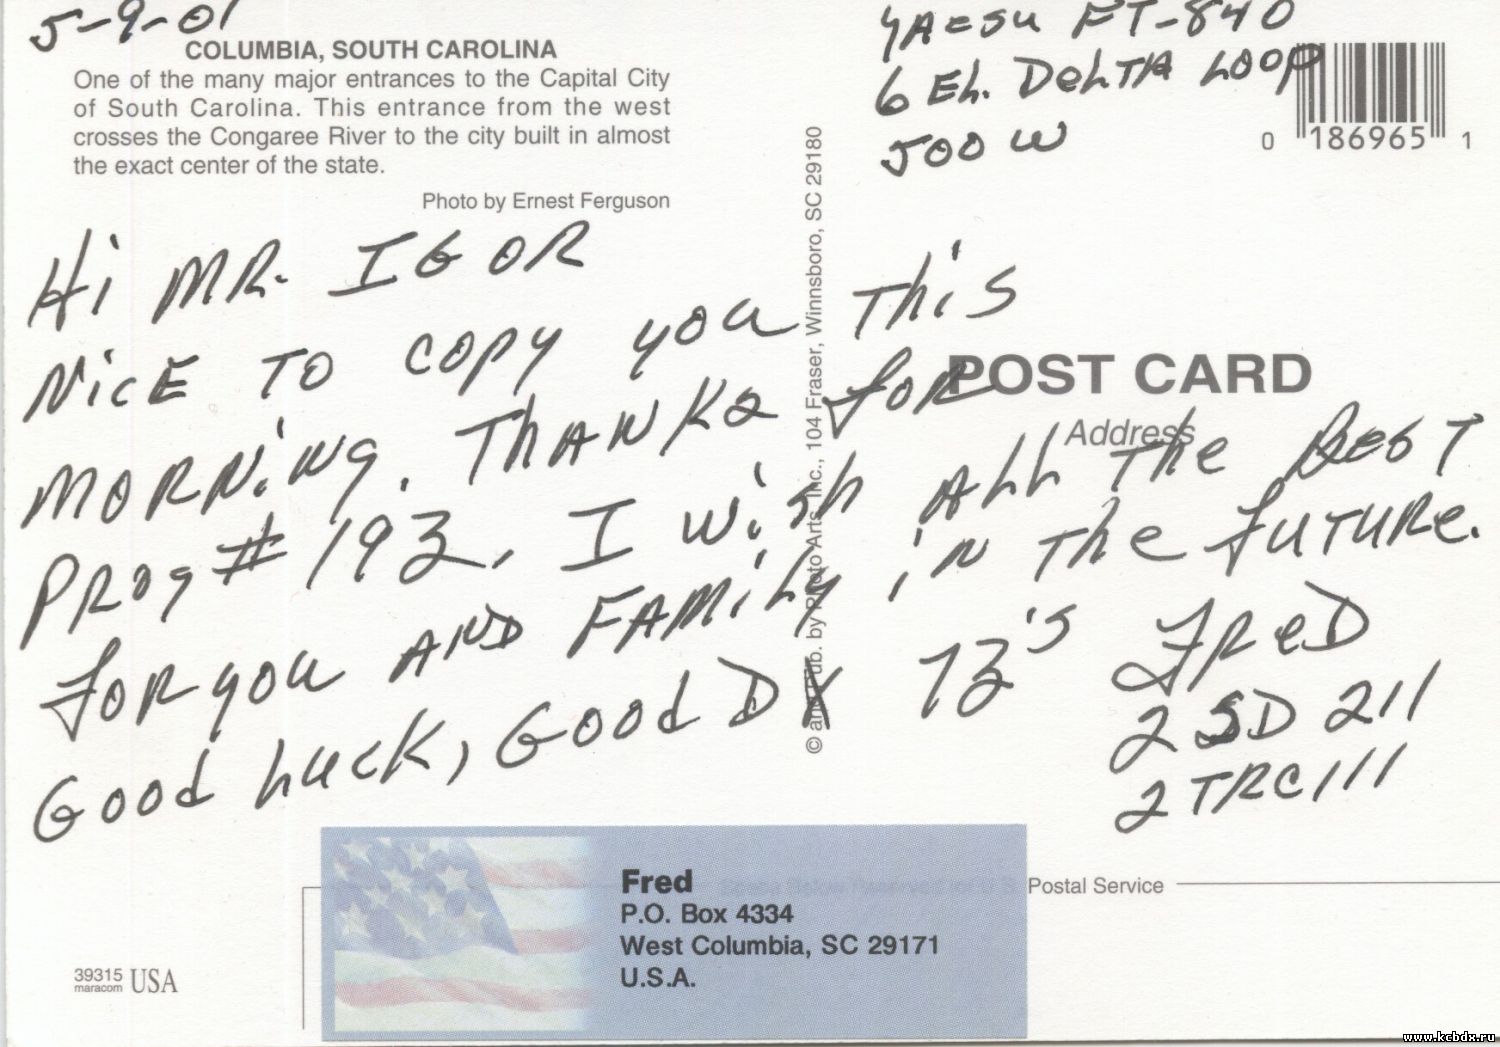 5-9-01
COLUMBIA, SOUTH CAROLINA
One of the many major entrances to the Capital City
of South Carolina. This entrance from the west
crosses the Congaree River to the city built in almost
the exact center of the state.
Photo by Ernest Ferguson
YAesu FT-840
6 EL. DELTA LOOP
500 W
0 186965 1
© and Pub. by Photo Arts, Inc., 104 Fraser, Winnsboro, SC 29180
POST CARD
Address
Hi MR. IGOR
NicE TO copy you This
MORNiNg. THANKs foR
PRog # 193, I wish ALL The Best
foR you AND FAMiLy iN The fuTuRe.
Good Luck, Good DX 73's FReD
2 SD 211
2 TRC 111
Postal Service
Fred
P.O. Box 4334
West Columbia, SC 29171
U.S.A.
39315
maracom
USA
www.kcbdx.ru